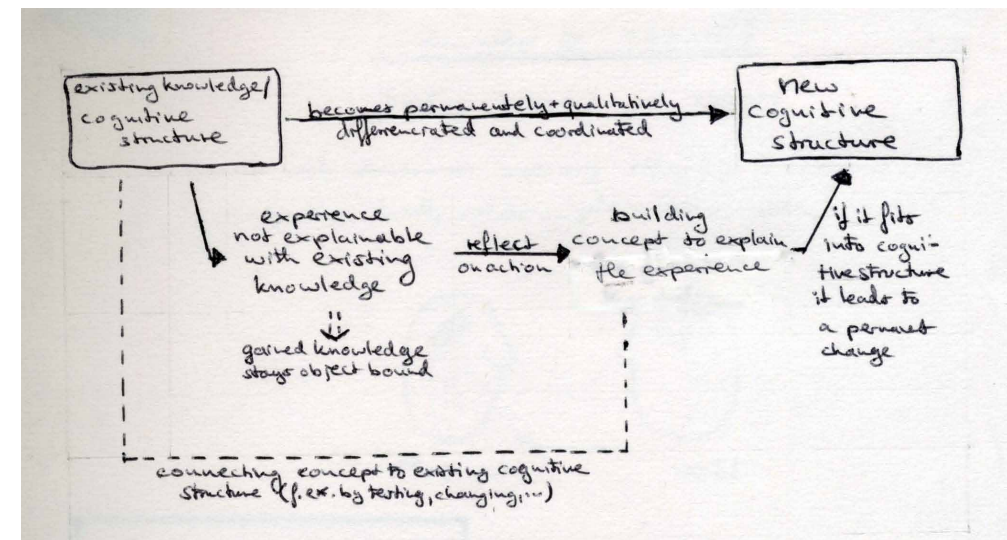 existing knowledge/
cognitive
structure
becomes permanentely + qualitatively
differenciated and coordinated
new
cognitive
structure
experience
not explainable
with existing
knowledge
reflect
on action
building
concept to explain
the experience
if it fits
into cogni-
tive structure
it leads to
a permanet
change
gained knowledge
stays object bound
connecting concept to existing cognitive
structure (f. ex. by testing, changing, ...)